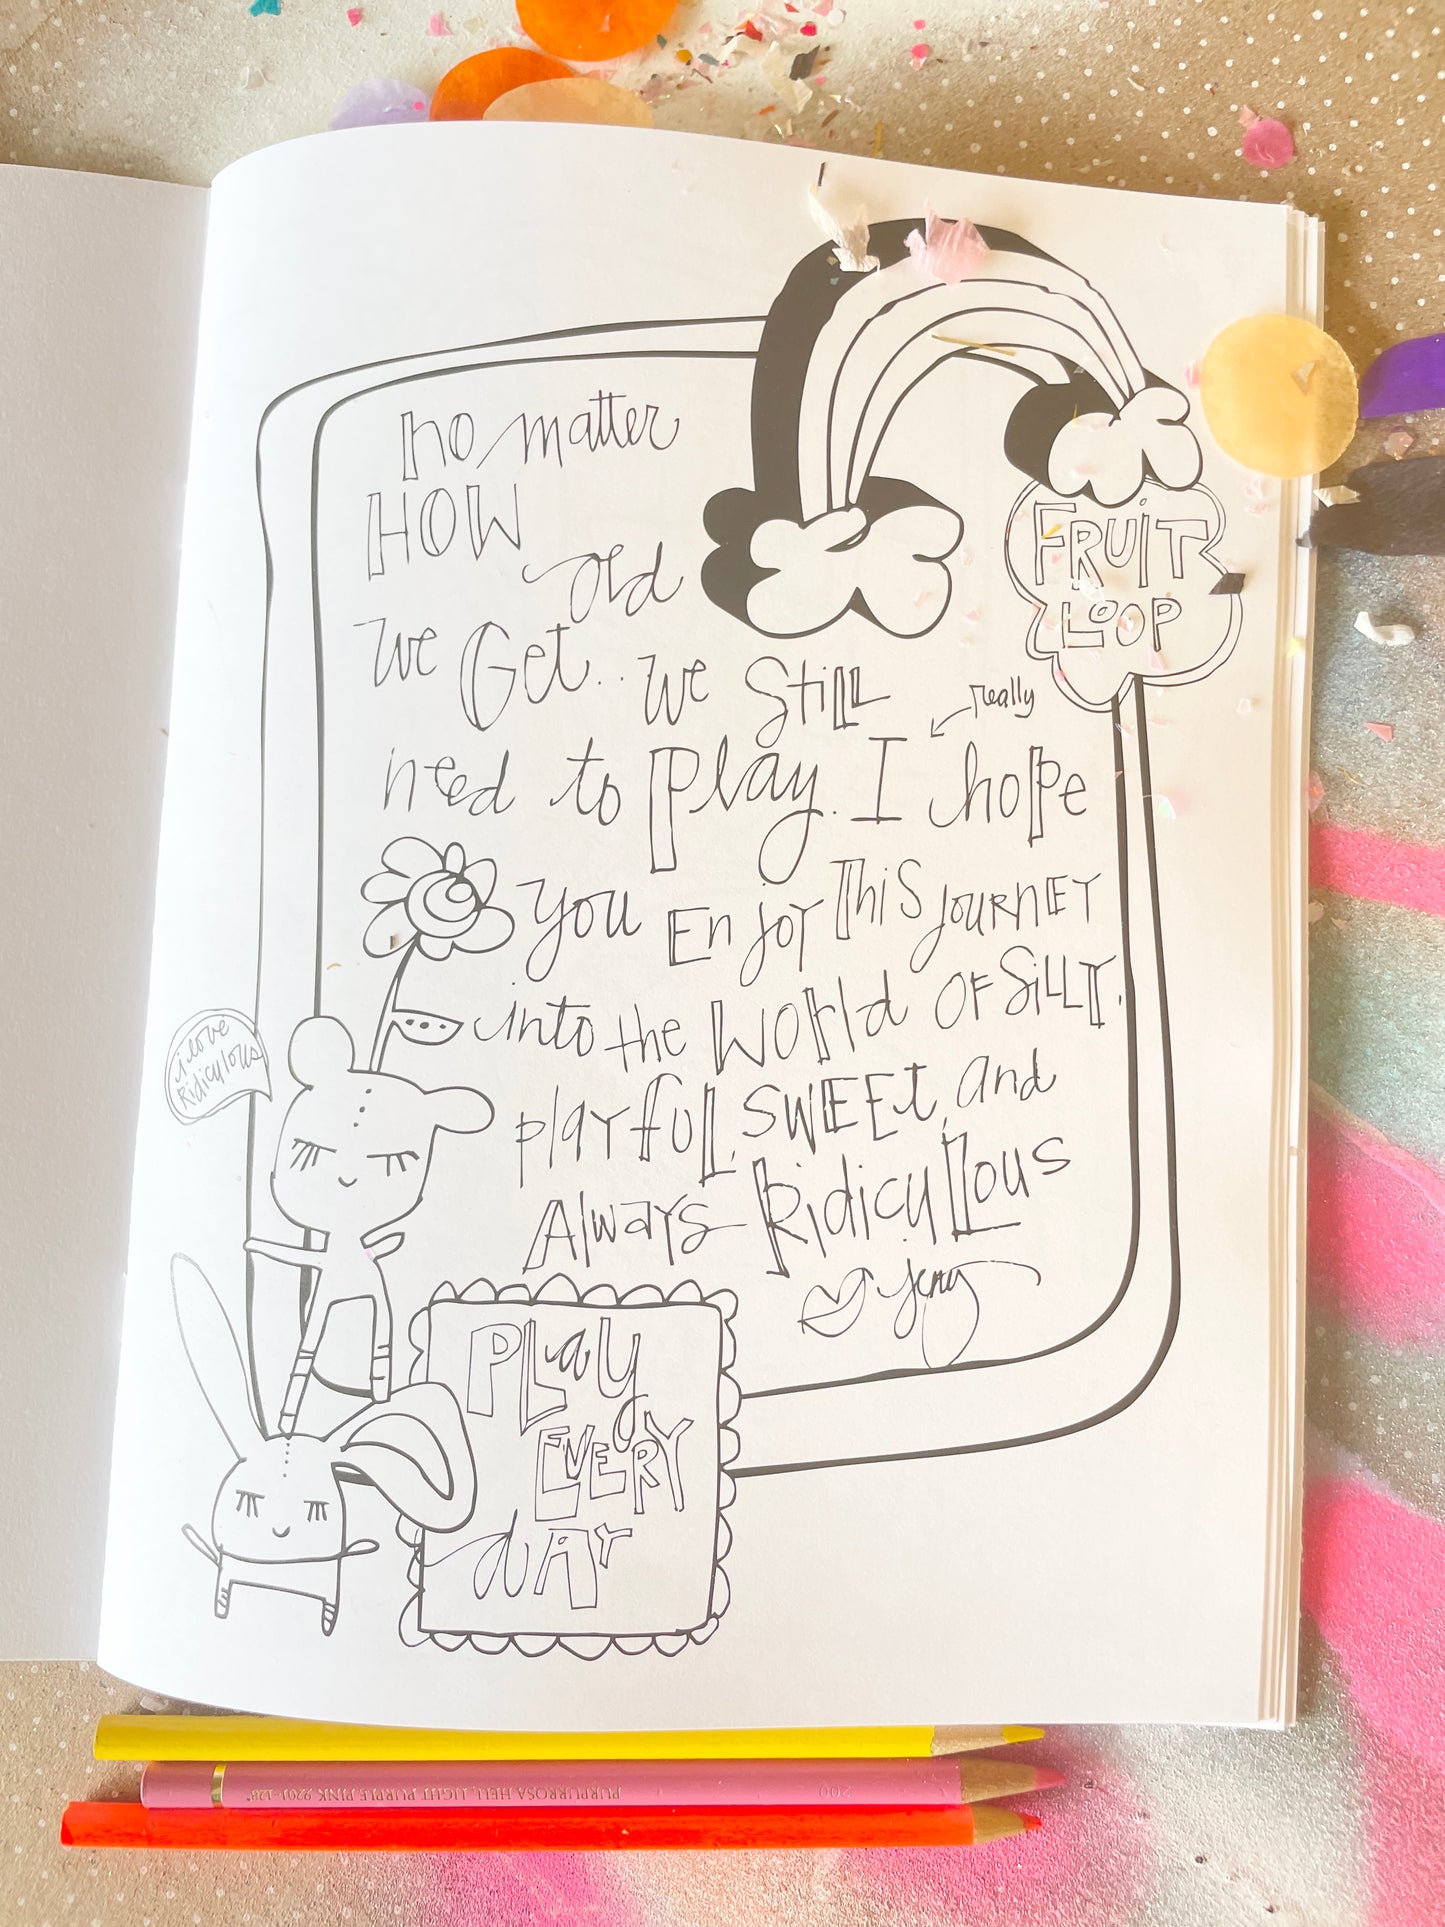 no matter
HOW
old
we Get.. we Still
really
need to play. I hope
you Enjoy This Journey
into the World OF Silly,
playful, Sweet, and
Always Ridiculous
Jenny
FRUiT
LOOP
i love
Ridiculous
PLay
EVERY
dAy
PURPURROSA HELL, LIGHT PURPLE PINK 9201-128* 200